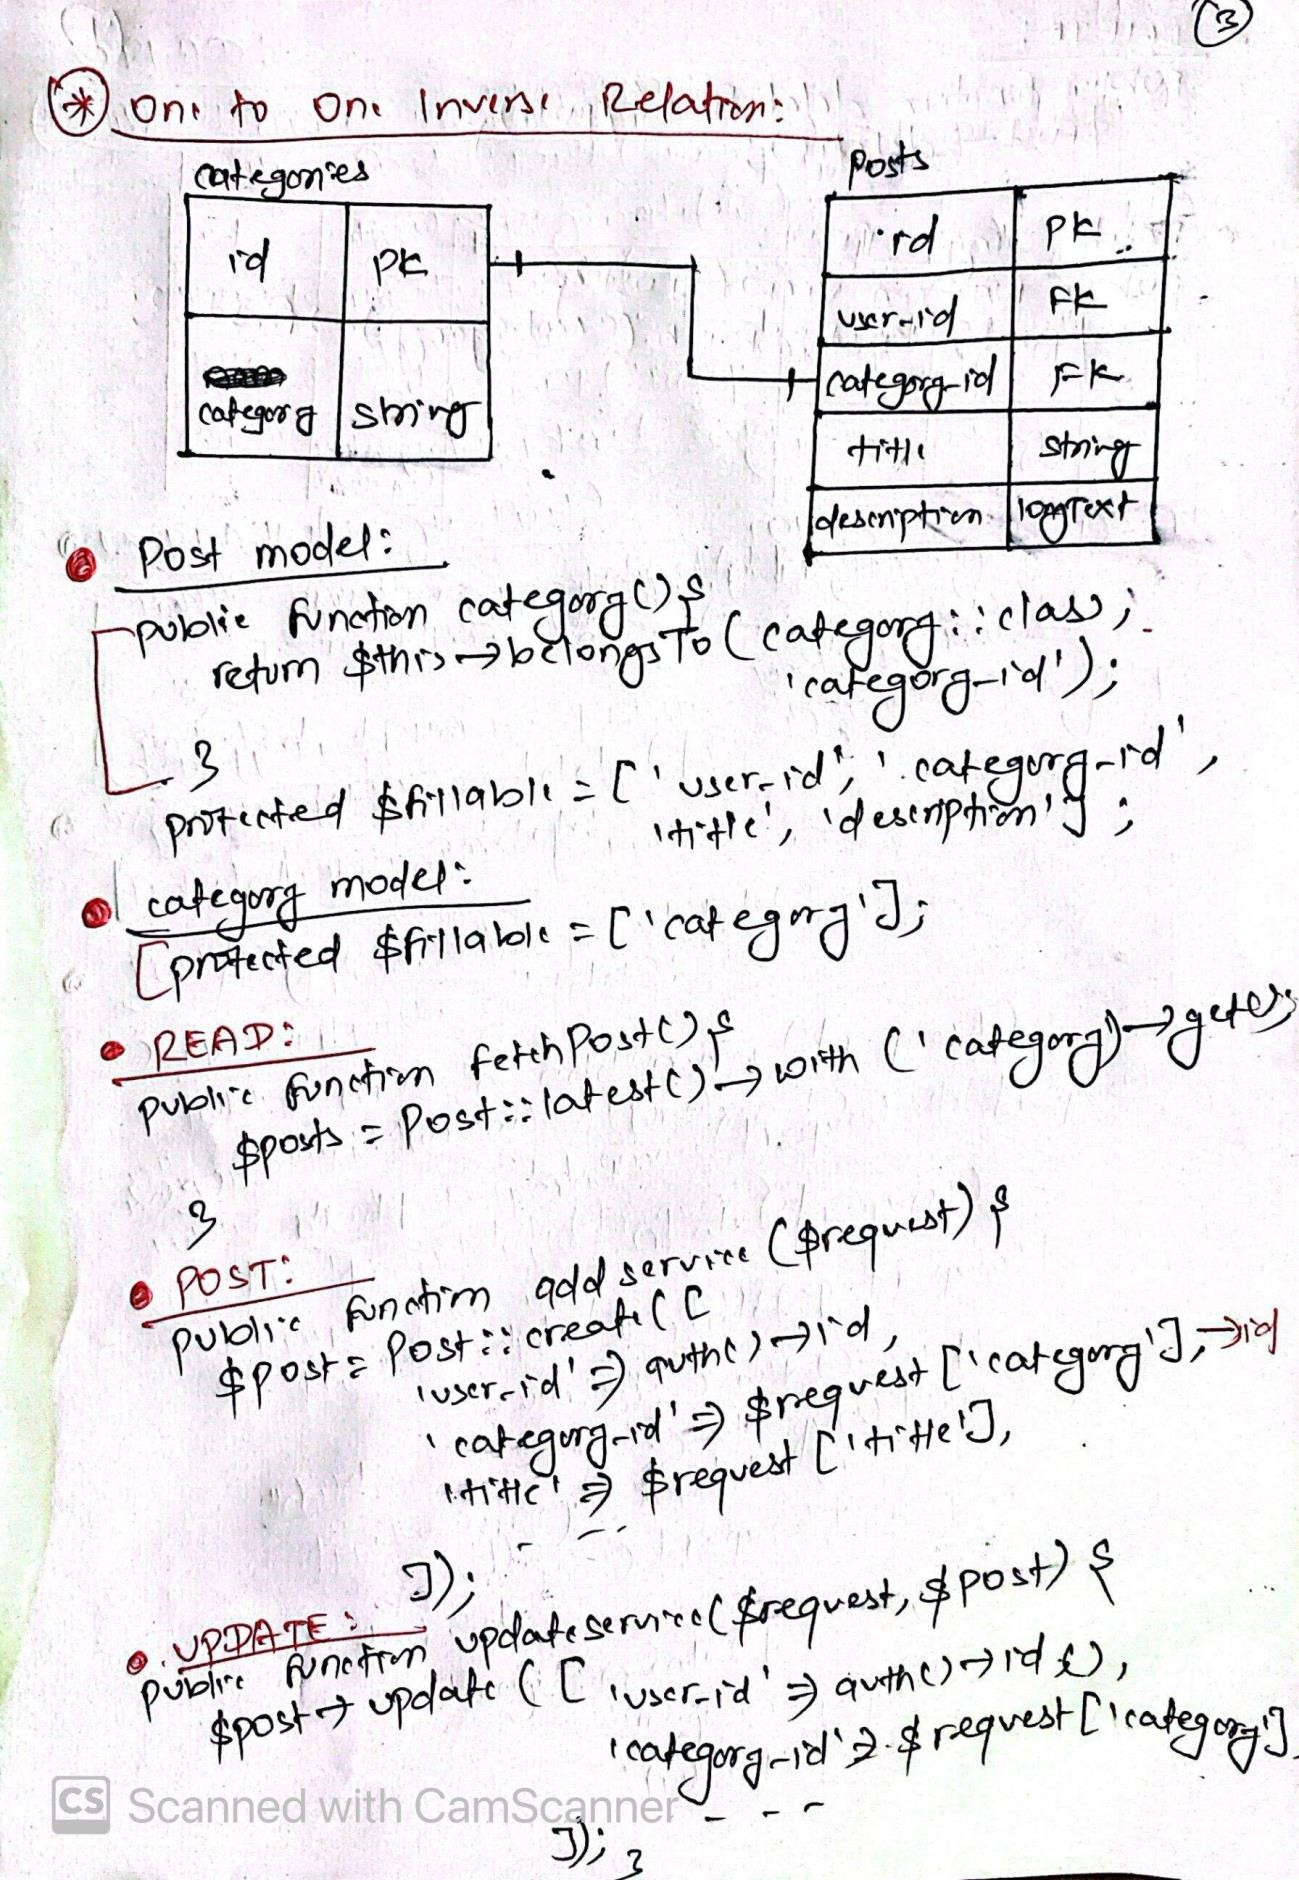 3
* One to One Inverse Relation:
categories
id PK
category string
Posts
id PK
user_id FK
category_id FK
title string
description longText
Post model:
public function category() {
return $this->belongsTo (category::class;
'category_id');
}
protected $fillable = ['user_id', 'category_id',
'title', 'description'];
category model:
[protected $fillable = ['category'];
READ:
public function fetchPost() {
$posts = Post::latest()->with ('category')->get();
}
POST:
public function addservice ($request) {
$post = Post::create([
'user_id' => auth()->id,
'category_id' => $request ['category'],->id
'title' => $request ['title'],
- - -
]);
UPDATE:
public function updateservice($request, $post) {
$post->update ([ 'user_id' => auth()->id(),
'category_id' => $request ['category']
- - -
]); }
CS Scanned with CamScanner